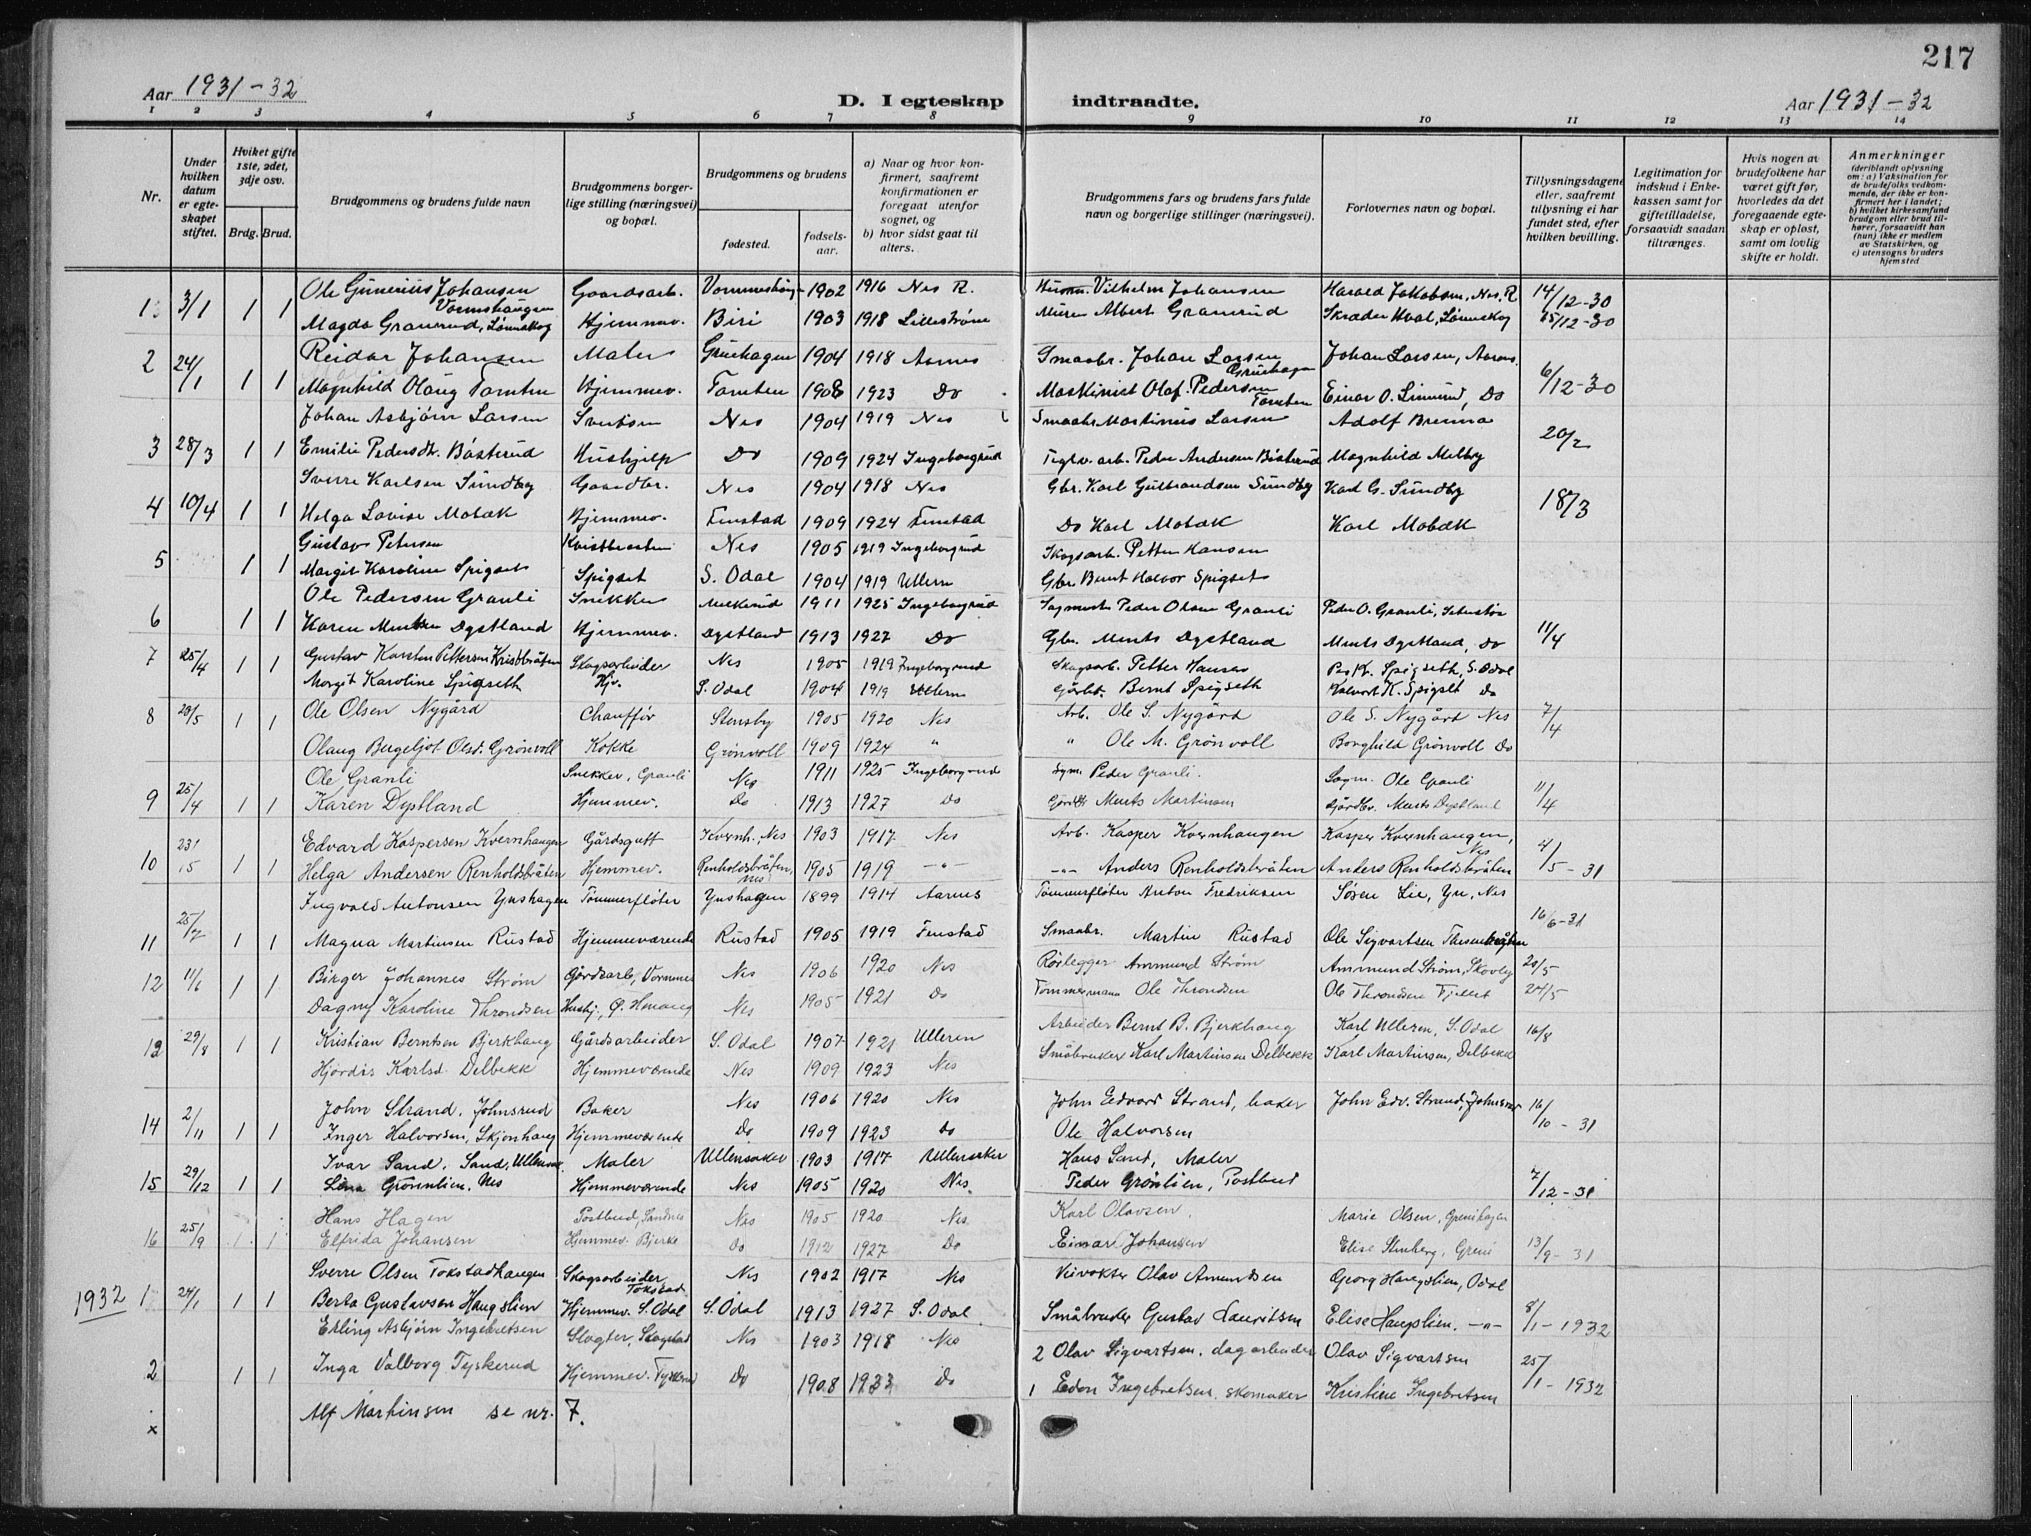 217
Aar 1931-32
D. I egteskap indtraadte.
Aar 1931-32
1 2 3 4 5 6 7 8 9 10 11 12 13 14
Nr.
Under hvilken datum er egteskapet stiftet.
Hviket gifte 1ste, 2det, 3dje osv.
Brdg. Brud.
Brudgommens og brudens fulde navn
Brudgommens borgerlige stilling (næringsvei) og bopæl.
Brudgommens og brudens
fødested.
fødselsaar.
a) Naar og hvor konfirmert, saafremt konfirmationen er foregaat utenfor sognet, og
b) hvor sidst gaat til alters.
Brudgommens fars og brudens fars fulde navn og borgerlige stillinger (næringsvei).
Forlovernes navn og bopæl.
Tillysningsdagene eller, saafremt tillysning ei har fundet sted, efter hvilken bevilling.
Legitimation for indskud i Enkekassen samt for giftetilladelse, forsaavidt saadan tiltrænges.
Hvis nogen av brudefolkene har været gift før, hvorledes da det foregaaende egteskap er opløst, samt om lovlig skifte er holdt.
Anmerkninger (deriblandt oplysning om: a) Vaksination for de brudefolks vedkommende, der ikke er konfirmert her i landet; b) hvilket kirkesamfund brudgom eller brud tilhører, forsaavidt han (hun) ikke er medlem av Statskirken, og c) utensogns bruders hjemsted
1 3/1 1 1 Ole Gunerius Johansen Vormshaugen Gaardsarb. 1902 1916 Nes R. Vilhelm Johansen Harald Jakobsen, Nes. R 14/12-30
Magda Granerud, Lønnskog Hjemmev. Biri 1903 1918 Lillestrøm Murer Albert Granerud Skræder Hval, Lønnskog 15/12-30
2 24/1 1 1 Reidar Johansen Maler Gruehagen 1904 1918 Aarnes Smaabr. Johan Larsen Gruehagen Johan Larsen, Aarnes
Magnhild Olaug Tomten Hjemmev. Tomten 1908 1923 Do Maskinist Olaf Pedersen Tomten Einar O. Do 6/12-30
Johan Asbjørn Larsen Nes 1904 1919 Nes Smaabr Martinius Larsen Adolf Brenna
3 28/3 1 1 Emilie Pedersdt. Båsterud Hushjelp Do 1909 1924 Ingeborgrud Teglv. arb. Peder Andersen Båsterud Magnhild Melby 20/2
Sverre Karlsen Sundby Gaardbr. Nes 1904 1918 Nes Gbr. Karl Gulbrandsen Sundby Karl G. Sundby
4 10/4 1 1 Helga Lovise Mobæk Hjemmev. Fenstad 1909 1924 Fenstad Do Karl Mobæk Karl Mobæk 18/3
Gustav Petersen Kvistbraaten Nes 1905 1919 Ingeborgrud Skogsarb. Petter Hansen
5 1 1 Margit Karoline Spigset Spigset S. Odal 1904 1919 Ullern Gbr Bernt Halvor Spigset
Ole Pedersen Granli Snikker 1911 1925 Ingeborgrud Sagmester Peder Olsen Granli Peder O. Granli,
6 1 1 Karen Mentsen Dystland Hjemmev. Dystland 1913 1927 Do Gbr. Ments Dystland Ments Dystland, Do 11/4
7 25/4 1 1 Gustav Karsten Pettersen Kristbråten Skogsarbeider Nes 1905 1919 Ingeborgrud Skogsarb. Petter Hansen Spigseth, S. Odal
Margit Karoline Spigseth Hjv. S. Odal 1904 1919 Ullern Gårbr. Bernt Spigseth K. Spigset do
8 20/5 1 1 Ole Olsen Nygård Chauffør Stensby 1905 1920 Nes Arb. Ole S. Nygård Ole S. Nygård Nes 7/4
Olaug Bergljot Olsd. Grønvoll Kokke Grønvoll 1909 1924 " " Ole M. Grønvoll Borghild Grønvoll Do
Ole Granli Snekker, Granli Nes 1911 1925 Ingeborgrud Sgm. Peder Granli. Sagm. Ole Granli
9 25/4 1 1 Karen Dystland Hjemmev. Do 1913 1927 Do Gårdbr Ments Martinsen Gårdbr. Ments Dystland 11/4
Edvard Kaspersen Kvernhaugen Gårdsgutt Kvernh., Nes 1903 1917 Nes Arb. Kasper Kvernhaugen Kasper Kvernhaugen, Nes
10 23/5 1 1 Helga Andersen Renholdsbråten Hjemmev. Renholdsbråten, Nes 1905 1919 -"- -"- Anders Renholdsbråten Anders Renholdsbråten 4/5-31
Ingvald Antonsen Ynshagen Tømmerfløter Ynshagen 1899 1914 Aarnes Tømmerfløter Anton Fredriksen Søren Lie, Yn, Nes
11 25/7 1 1 Magna Martinsen Rustad Hjemmeværende Rustad 1905 1919 Fenstad Smaabr. Martin Rustad Ole Sigvartsen 16/6-31
12 11/6 1 1 Birger Johannes Strøm Gårdsarb, Nes 1906 1920 Nes Rørlegger Ammund Strøm Ammund Strøm, Skovly 20/5
Dagny Karoline Throndsen Nes 1905 1921 Do Tømmermann Ole Throndsen Ole Throndsen Fjellet 24/5
12 29/8 1 1 Kristian Berntsen Bjerkhaug Gårdsarbeider S. Odal 1907 1921 Ulleren Arbeider Bernt B. Bjerkhaug Karl Ulleren, S. Odal 16/8
Hjørdis Karlsd. Delbekk Hjemmeværende Nes 1909 1923 Nes Småbruker Karl Martinsen Delbekk Karl Martinsen, Delbekk
John Strand, Johnsrud Baker Nes 1906 1920 Nes John Edvard Strand, baker John Edv. Strand, Johnsrud
14 2/11 1 1 Inger Halvorsen, Skjønhaug Hjemmeværende Do 1909 1923 Do Ole Halvorsen 16/10-31
Ivar Sand, Sand, Ullensak. Maler Ullensaker 1903 1917 Ullensaker Hans Sand, Maler
15 29/12 1 1 Grønlien, Nes Hjemmeværende Nes 1905 1920 Nes Peder Grønlien, Postbud 7/12-31
Hans Hagen Postbud, Nes 1905 1920 Nes Karl Olavsen. Marie Olsen,
16 25/9 1 1 Elfrida Johansen Hjemmev. Bjerke Do 1912 1927 Do Einar Johansen Elise 13/9-31
Sverre Olsen Tokstadhaugen Skogsarbeider Tokstad Nes 1902 1917 Nes Olav Amundsen Georg Haugslien, Odal
1932 1 24/1 1 1 Berta Gustavsen Haugslien Hjemmev. S. Odal S. Odal 1913 1927 S. Odal Småbruder Gustav Lauritsen Elise Haugslien. -"- 8/1-1932
Erling Asbjørn Ingebretsen Slagter, Nes 1903 1918 Nes 2 Olav Sigvartsen, dagarbeider Olav Sigvartsen
2 1 1 Inga Valborg Tyskerud Hjemmev. Do 1908 Do 1 Edon Ingebretsen, skomaker Kristine Ingebretsen 25/1-1932
x Alf Martinsen se nr. 7.